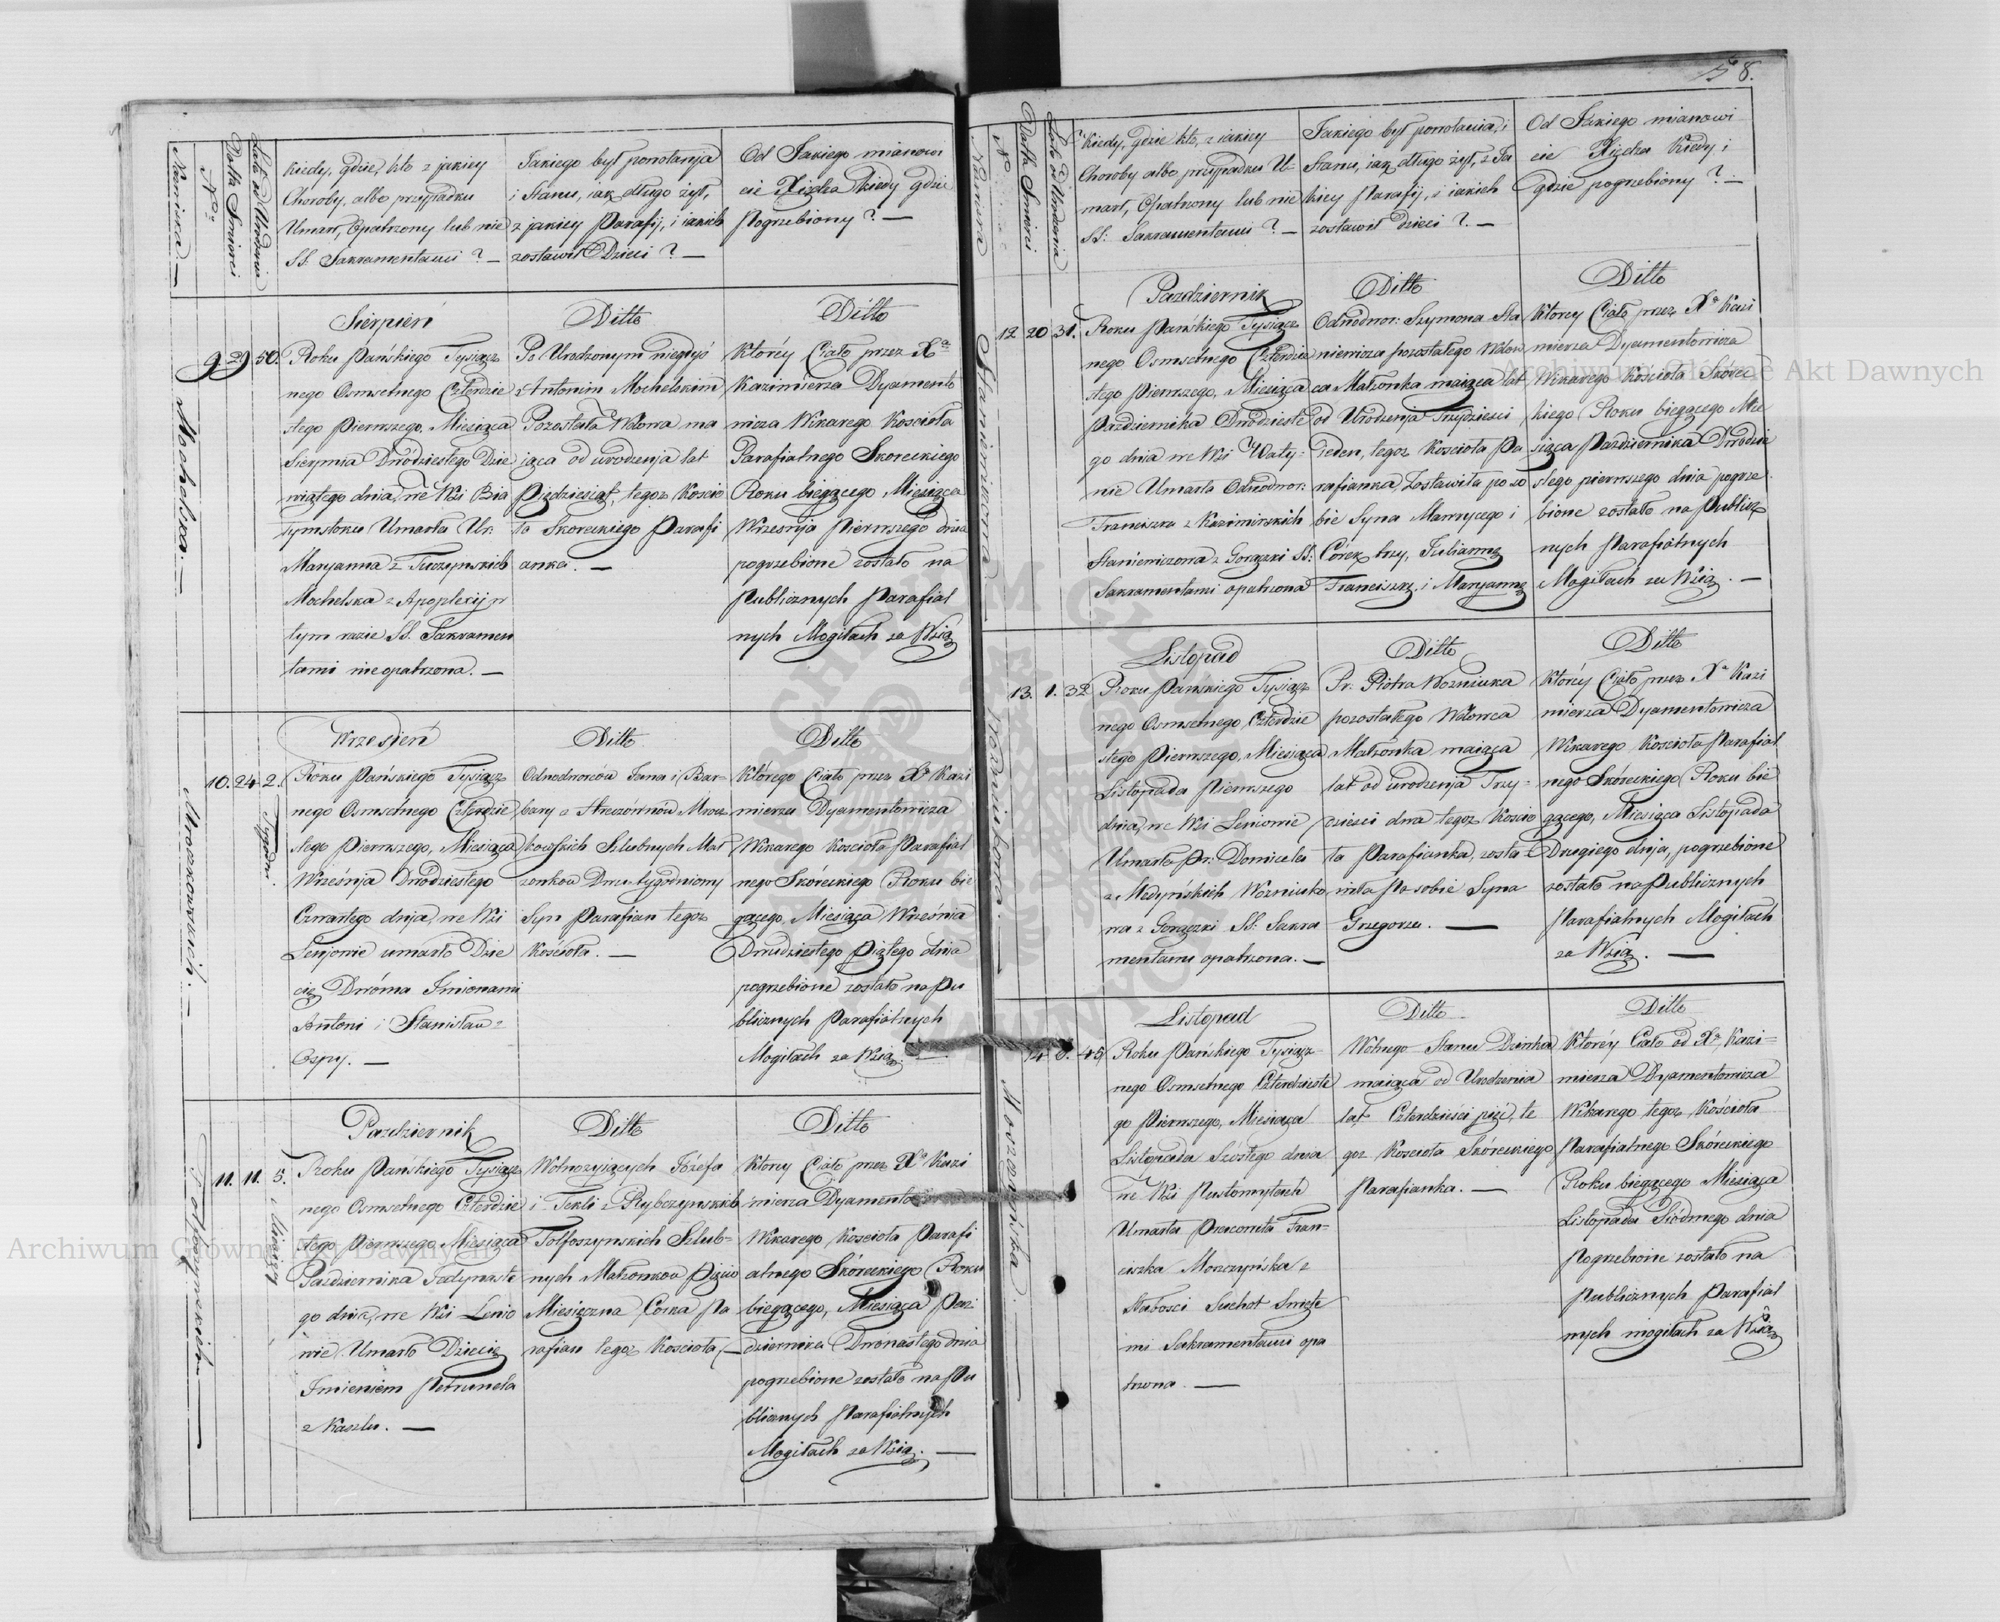 58.
Nazwiska
N°
Datta Śmierci
Lata od Urodzenia
Kiedy, gdzie, kto z jakiey
Choroby, albo przypadku
Umarł, Opatrzony lub nie
SS. Sakramentami ? —
Jakiego był powołanja
i Stanu, iak długo żył,
z jakiey Parafij, i iakich
zostawił Dzieci ? —
Od Jakiego mianowi
cie Xiędza kiedy gdzie
Pogrzebiony ? —
Mochelska. —
9. 29 50.
Sierpień
Roku Pańskiego Tysiącz
nego Osmsetnego Czterdzie
stego Pierwszego, Miesiąca
Sierpnia Dwódziestego Dzie
wiątego dnia, we Wsi Bia
łymstoku Umarła Ur:
Maryanna z Tuczynskich
Mochelska z Apoplexij w
tym razie SS. Sakramen
tami nieopatrzona. —
Ditto
Po Urodzonym niegdyś
Antonim Mochelskim
Pozostała Wdowa ma
jąca od urodzenja lat
Pięćdziesiąt, tegoż Kościo
ła Skoreckiego Parafi
anka. —
Ditto
Którey Ciało przez Xa
Kazimierza Dyamento
wicza Wikarego Kościoła
Parafialnego Skoreckiego
Roku bieżącego Miesiąca
Wrześnja Pierwszego dnia
pogrzebione zostało na
Publicznych Parafial
nych Mogiłach za Wsią
Mroczkowskich. —
10. 24 2.
Tygodni.
Wrzesień
Roku Pańskiego Tysiącz
nego Osmsetnego Czterdzie
stego Pierwszego, Miesiąca
Wrześnja Dwodziestego
Czwartego dnja, we Wsi
Lenjowie umarło Dzie
cię Dwóma Imionami
Antoni i Stanisław z
Ospy. —
Ditto
Odnodworców Jana i Bar
bary z Mrocz
kowskich Slubnych Mał
żonków Dwu tygodniowy
Syn Parafian tegoż
Kościoła. —
Ditto
Którego Ciało przez Xa Kazi
mierza Dyamentowicza
Wikarego Kościoła Parafial
nego Skóreckiego Roku bie
żącego, Miesiąca Wrześnja
Dwudziestego Piątego dnja
pogrzebione zostało na Pu
blicznych Parafialnych
Mogiłach za Wsią. —
11. 11. 5.
Miesięcy
Pazdziernik
Roku Pańskiego Tysiącz
nego Osmsetnego Czterdzie
stego Pierwszego, Miesiąca
Pazdziernika Jedynaste
go dnia, we Wsi Lenio
wie Umarło Dziecię
Imieniem Petronela
z Kaszlu. —
Ditto
Wolnożyjących Józefa
i Tekli z Rybczynskich
Tołłoczynskich Slub-
nych Małżonków Pięcio
Miesięczna Corka Pa
rafian tegoż Kościoła, —
Ditto
Ktorey Ciało przez Xa Kazi
mierza Dyamento
Wikarego Kościoła Parafi
alnego Skóreckiego Roku
bieżącego, Miesiąca Paz
dziernika Dwonastego dnia
pogrzebione zostało na Pu
blicznych Parafialnych
Mogiłach za Wsią. —
Nazwiska
N°
Datta Smierci
Lata od Urodzenia
Kiedy, gdzie kto, z iakiey
Choroby albo przypadku U-
marł, Opatrzony lub nie
SS: Sakramentami ? —
Jakiego był powołania, i
Stanu, iak długo żył, z Ja
kiey Parafij, i iakich
zostawił Dzieci ? —
Od Jakiego mianowi
cie Xiędza Kiedy i
gdzie pogrzebiony ? —
Staniewiczowa
12. 20 31.
Pazdziernik
Roku Pańskiego Tysiącz
nego Osmsetnego Czterdzie
stego Pierwszego, Miesiąca
Pazdziernika Dwodzieste
go dnia we Wsi Waty-
nie Umarła Odnodwor:
Franciszka z Kazimirskich
Staniewiczowa z Gorączki SS:
Sakramentami opatrzona
Ditto
Odnodwor: Szymona Sta
niewicza pozostałego Wdow
ca Małżonka maiąca lat
od Urodzenja Trzydzieści
Jeden, tegoż Kościoła Pa
rafianka, Zostawiła po so
bie Syna Mawrycego i
Córek trzy, Juliannę
Franciszkę, i Maryannę
Ditto
Którey Ciało przez Xa Kazi
mierza Dyamentowicza
Wikarego Kościoła Skórec
kiego Roku bieżącego Mie
siąca Pazdziernika Dwódzie
stego pierwszego dnia pogrze
bione zostało na Publicz
nych Parafialnych
Mogiłach za Wsią. —
Wozniukowa.
13. 1. 32
Listopad
Roku Pańskiego Tysiącz
nego Osmsetnego Czterdzie
stego Pierwszego, Miesiąca
Listopada Pierwszego
dnia, we Wsi Leniowie
Umarła Pr: Domicela
z Medyńskich Wozniuko
wa z Gorączki SS: Sakra
mentami opatrzona. —
Ditto
Pr: Piotra Wozniuka
pozostałego Wdowca
Małżonka maiąca
lat od urodzenja Trzy-
dzieści dwa tegoż Kościo
ła Parafianka, zosta-
wiła Po sobie Syna
Grzegorza. —
Ditto
Którey Ciało przez Xa Kazi
mierza Dyamentowicza
Wikarego Kościoła Parafial
nego Skóreckiego Roku bie
żącego, Miesiąca Listopada
Drugiego dnja, pogrzebione
zostało na Publicznych
Parafialnych Mogiłach
za Wsią. —
Moszczyńska
14 6. 45
Listopad
Roku Pańskiego Tysiącz-
nego Osmsetnego Czterdzieste
go Pierwszego, Miesiąca
Listopada Szóstego dnia
we Wsi Pustomytach
Umarła Pracowita Fran-
ciszka Moszczyńska z
Słabosci Suchot Swięte
mi Sakramentami opa
trzona. —
Ditto
Wolnego Stanu Dziewka
maiąca od Urodzenia
lat Czterdzieści pięć, te
goż Kościoła Skóreckiego
Parafianka. —
Ditto
Którey Ciało od Xa Kazi-
mierza Dyamentowicza
Wikarego tegoż Kościoła
Parafialnego Skóreckiego
Roku bieżącego Miesiąca
Listopada Siódmego dnia
Pogrzebione zostało na
Publicznych Parafial
nych mogiłach za Wsią
Archiwum Główne Akt Dawnych
Archiwum Główne Akt Dawnych